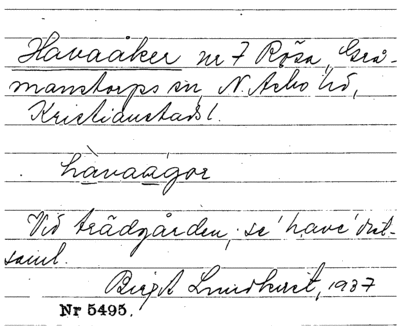 Havaåker nr 7 Röja, Grå-
manstorps sn, N. Åsbo hd,
Kristianstads l.
hàvaágor
Vid trädgården; se 'have' ord-
saml.
Birgit Lundkvist, 1937
Nr 5495.